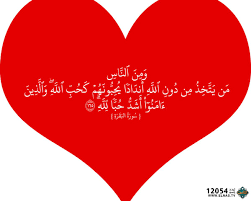 وَمِنَ النَّاسِ
مَن يَتَّخِذُ مِن دُونِ اللَّهِ أَندَادًا يُحِبُّونَهُمْ كَحُبِّ اللَّهِ ۖ وَالَّذِينَ
ءَامَنُوٓا۟ أَشَدُّ حُبًّا لِّلَّهِ
[ سُورَةُ البَقَرَةِ ]
12054
WWW.ELMAX.TV